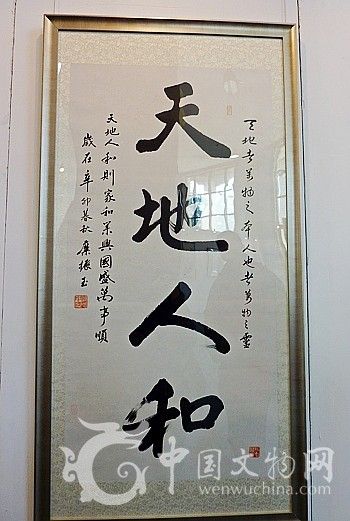 天地者萬物之本人也者萬物之靈
天地人和
天地人和則家和業興國盛萬事順
歲在辛卯暮秋
中国文物网
wenwuchina.com